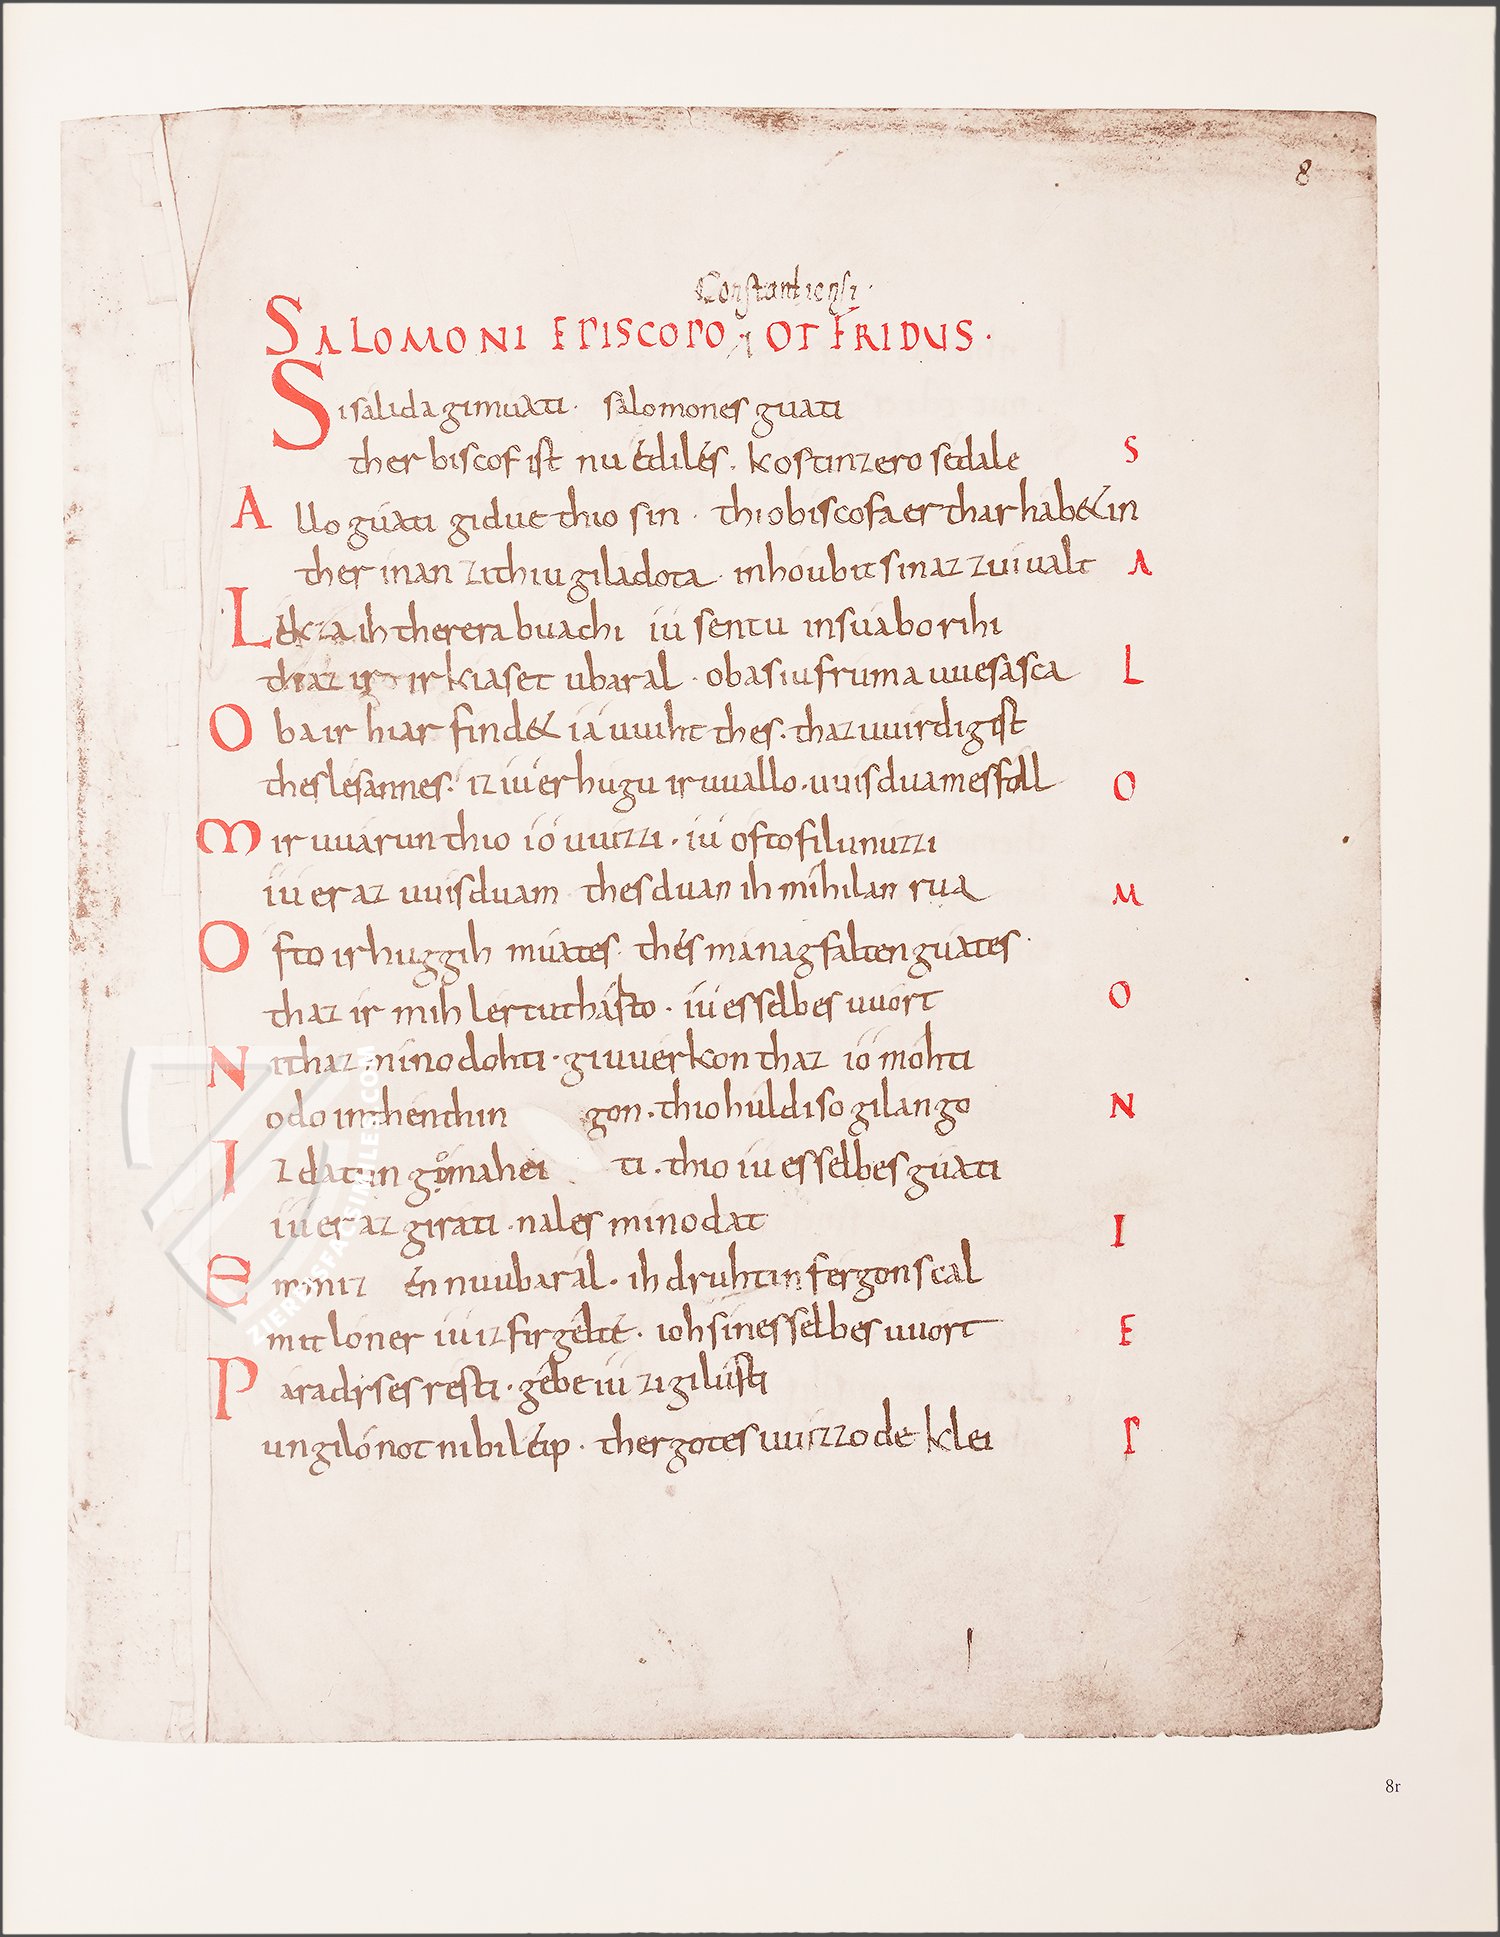 8
Constantiensi ·
SALOMONI EPISCOPO OTFRIDUS ·
Si sálida gimuati · sálomones guati
ther biscof ist nu édilés · kostinzero sédale S
Allo gúati gidue thio sin · thio biscofa er thar hab& in
ther inan zi thiu giladota · in houbit sinaz zuiualt A
Lékza ih therera buachi iú sentu in suabo rihi
thaz ir irkiaset ubar al · oba siu fruma uuesan sca L
Oba ir hiar find& iá uuiht thes · thaz uuirdig ist
thes lésannes · iz iúer hugu iruuallo · uuisduames foll O
Mir uuárun thio ío uuizzi · iú ofto filu nuzzi
iúeraz uuisduam · thes duan ih mihilan rua M
Ofto irhugg ih múates · thés mánagfalten gúates ·
thaz ir mih lertut hárto · iúes selbes uuort O
Ni thaz míno dohti · giuuérkon thaz ío móhti
odo in then thin gon · thio húldi so gilango N
Iz datun gómahei ti · thio iues selbes gúati
iúeraz girati · nales mino dat I
Emmiz én nu ubarál · ih druhtin férgon scal
mit lóner iú iz firgélte · ioh sínes selbes uuort E
Paradyses résti · gébe iú zi gilústi
ungilónot ni biléip · ther gotes uuizzode klei P
8r
ZIERESFACSIMILES.COM